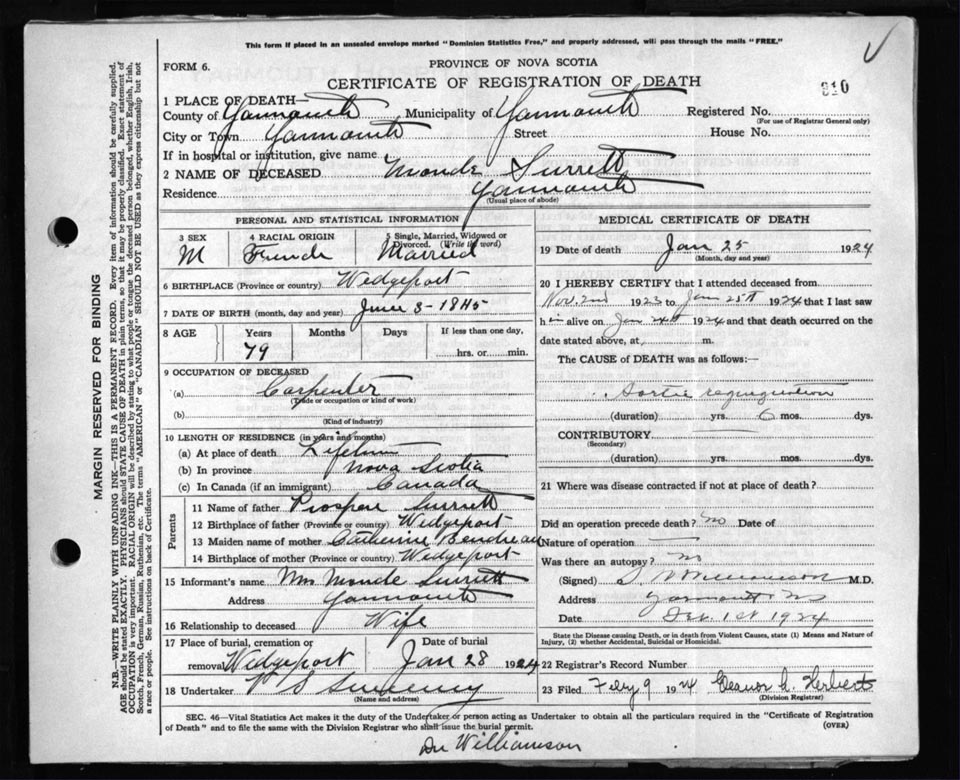 This form if placed in an unsealed envelope marked "Dominion Statistics Free," and properly addressed, will pass through the mails "FREE."
PROVINCE OF NOVA SCOTIA
FORM 6.
CERTIFICATE OF REGISTRATION OF DEATH
910
1 PLACE OF DEATH—
County of Yarmouth Municipality of Yarmouth Registered No.
(For use of Registrar General only)
City or Town Yarmouth Street House No.
If in hospital or institution, give name
2 NAME OF DECEASED Monde Surrett
Residence Yarmouth
(Usual place of abode)
PERSONAL AND STATISTICAL INFORMATION
3 SEX 4 RACIAL ORIGIN 5 Single, Married, Widowed or Divorced. (Write the word)
M French Married
6 BIRTHPLACE (Province or country) Wedgeport
7 DATE OF BIRTH (month, day and year) June 3-1845
8 AGE Years Months Days If less than one day,
79 hrs. or min.
9 OCCUPATION OF DECEASED
(a) Carpenter
(Trade or occupation or kind of work)
(b)
(Kind of industry)
10 LENGTH OF RESIDENCE (in years and months)
(a) At place of death Lifetime
(b) In province Nova Scotia
(c) In Canada (if an immigrant) Canada
Parents
11 Name of father Prospere Surrett
12 Birthplace of father (Province or country) Wedgeport
13 Maiden name of mother Catherine Bendreau
14 Birthplace of mother (Province or country) Wedgeport
15 Informant's name Mrs Monde Surrett
Address Yarmouth
16 Relationship to deceased Wife
17 Place of burial, cremation or removal Wedgeport Date of burial Jan 28 1924
18 Undertaker V S Sweeny
(Name and address)
MEDICAL CERTIFICATE OF DEATH
19 Date of death Jan 25 1924
(Month, day and year)
20 I HEREBY CERTIFY that I attended deceased from
Nov. 2nd 1923 to Jan 25th 1924 that I last saw
him alive on Jan 24th 1924 and that death occurred on the
date stated above, at m.
The CAUSE of DEATH was as follows:—
Aortic regurgitation
(duration) yrs. 6 mos. dys.
CONTRIBUTORY
(Secondary)
(duration) yrs. mos. dys.
21 Where was disease contracted if not at place of death?
Did an operation precede death? no Date of
Nature of operation
Was there an autopsy? no
(Signed) Williamson M.D.
Address Yarmouth NS
Date 1st 1924
State the Disease causing Death, or in death from Violent Causes, state (1) Means and Nature of Injury, (2) whether Accidental, Suicidal or Homicidal.
22 Registrar's Record Number
23 Filed Feby 9 1924 Eleanor L. Herbert
(Division Registrar)
SEC. 46—Vital Statistics Act makes it the duty of the Undertaker or person acting as Undertaker to obtain all the particulars required in the "Certificate of Registration
of Death" and to file the same with the Division Registrar who shall issue the burial permit.
Dr Williamson
MARGIN RESERVED FOR BINDING
N.B.—WRITE PLAINLY WITH UNFADING INK—THIS IS A PERMANENT RECORD. Every item of information should be carefully supplied.
AGE should be stated EXACTLY. PHYSICIANS should STATE CAUSE OF DEATH in plain terms, so that it may be properly classified. Exact statement of
OCCUPATION is very important. RACIAL ORIGIN will be described by stating to what people or tongue the deceased person belonged, whether English, Irish,
Scotch, French, German, Russian, Ruthenian, etc. The terms "AMERICAN" or "CANADIAN" SHOULD NOT BE USED as they express citizenship but not
a race or people. See instructions on back of Certificate.